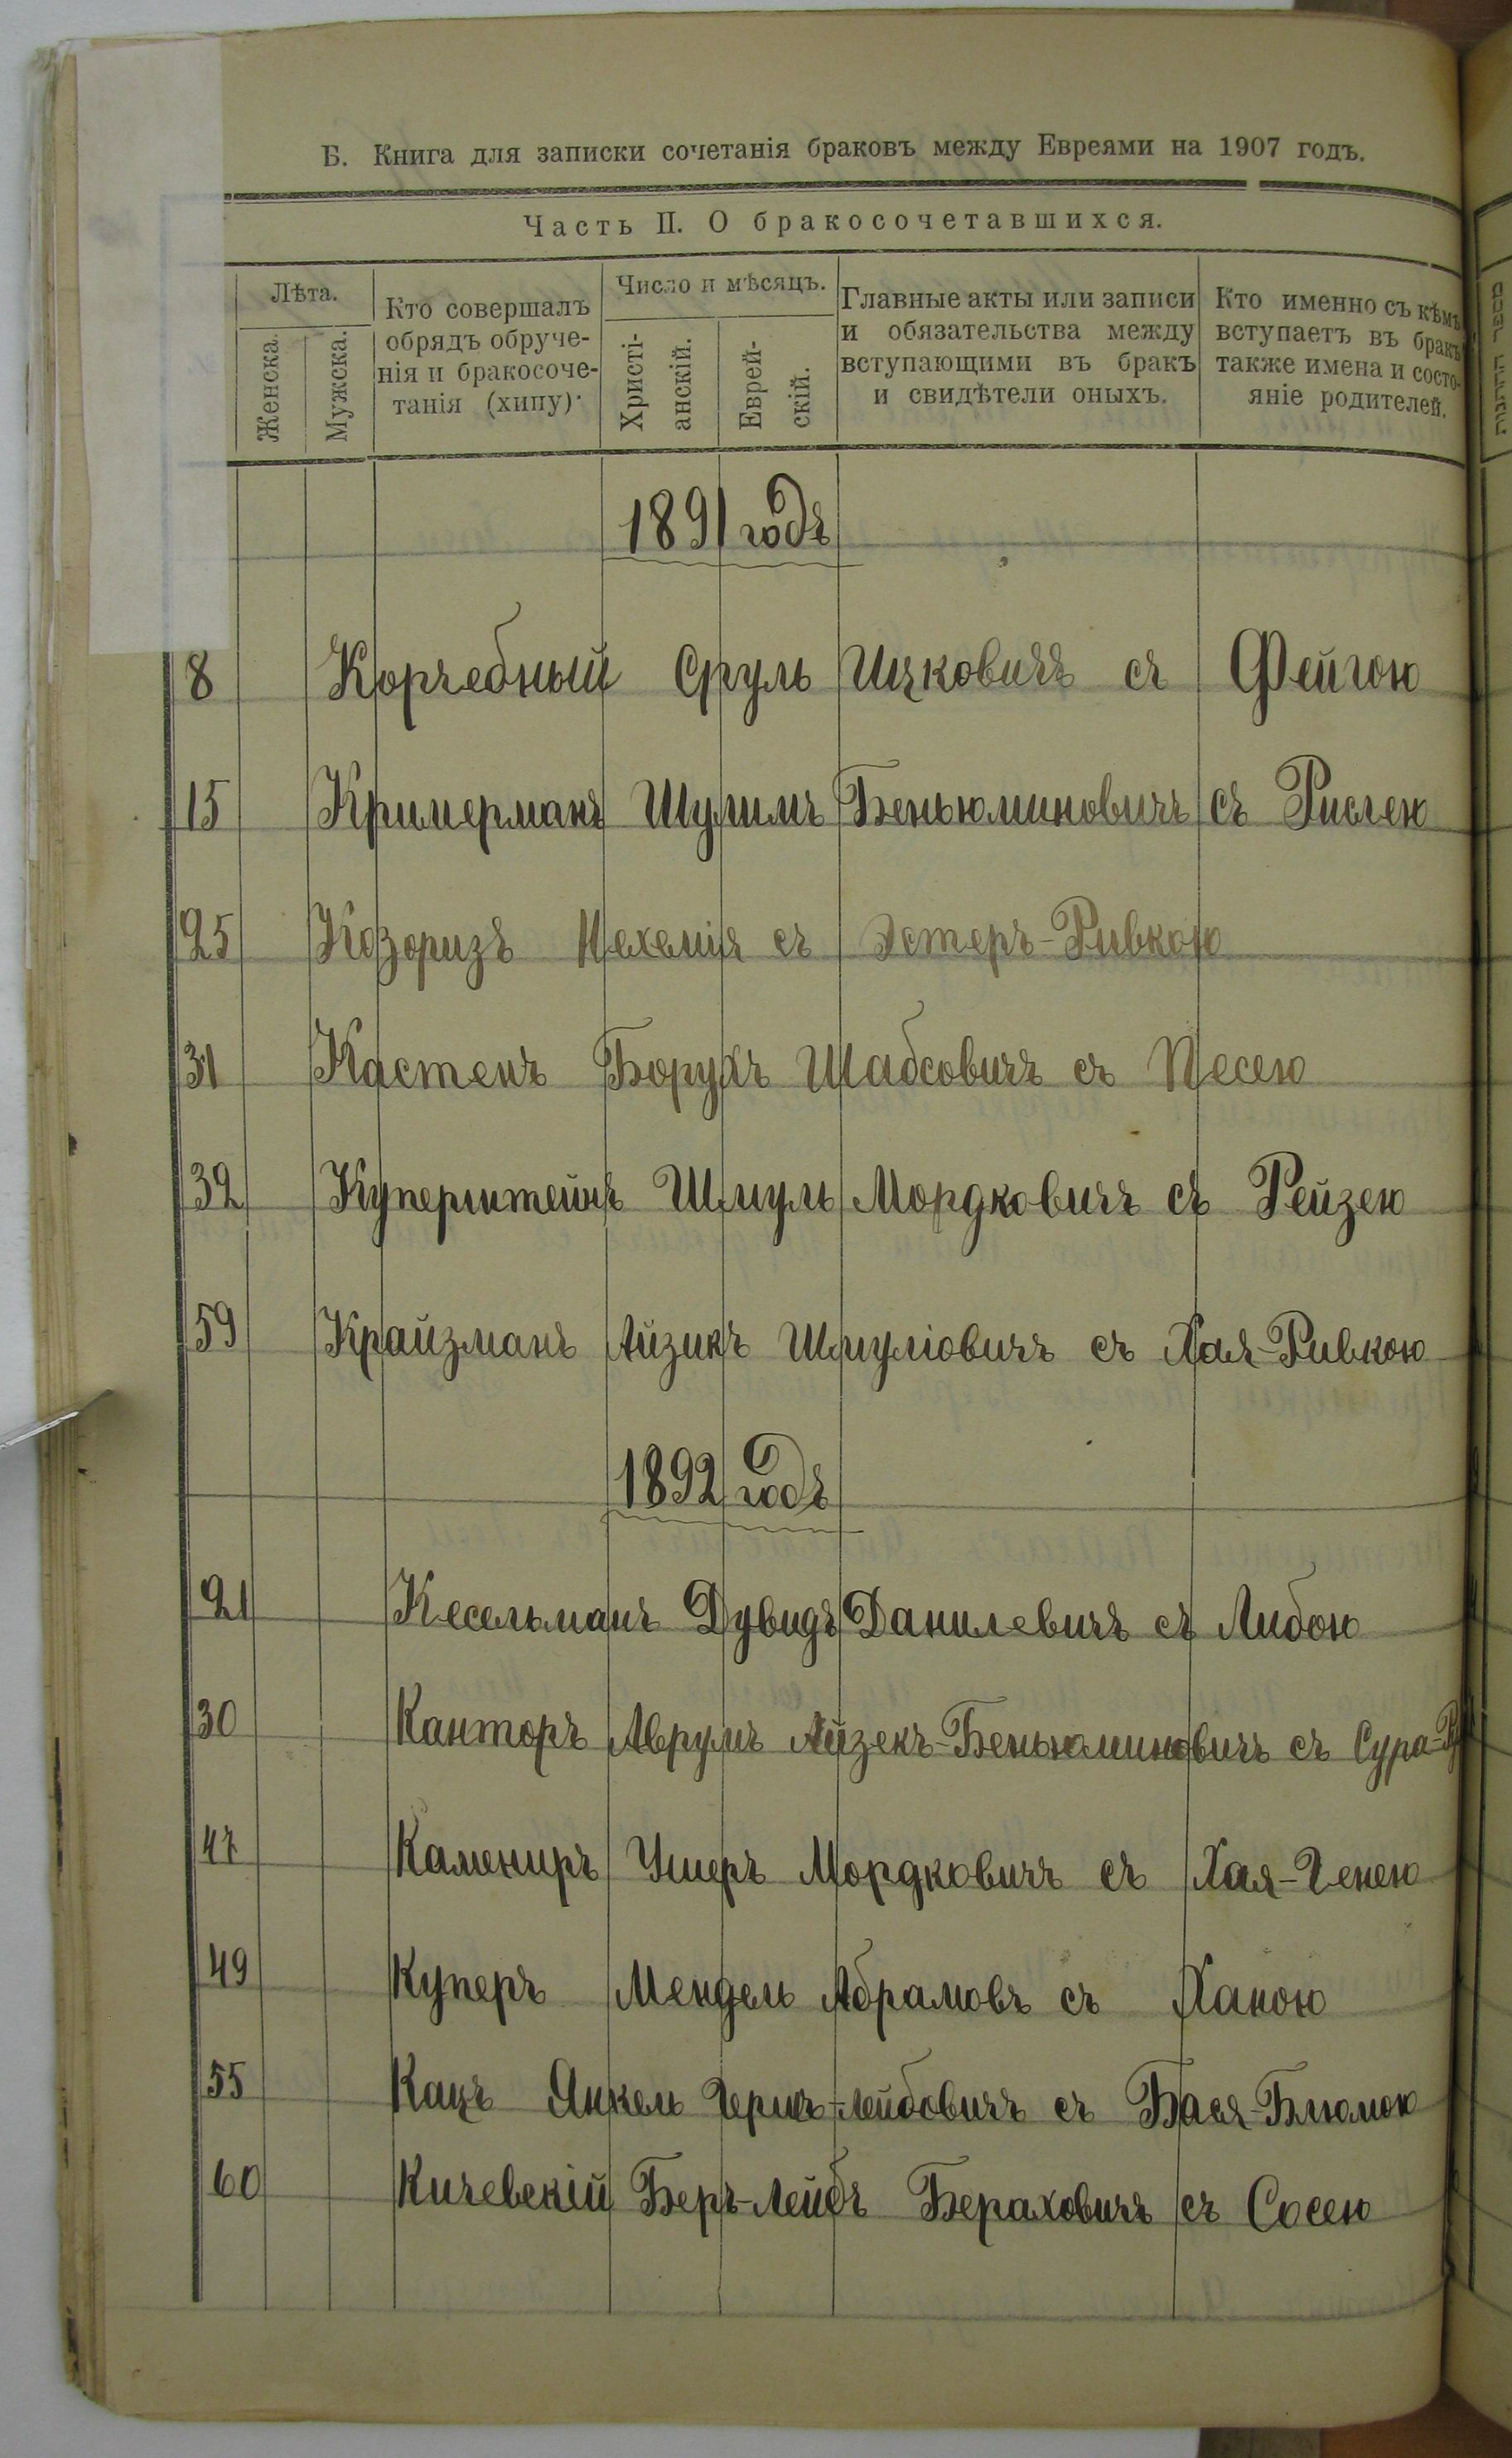 Б. Книга для записки сочетанія браковъ между Евреями на 1907 годъ.
Часть II. О бракосочетавшихся.
Лѣта.
Женска.
Мужска.
Кто совершалъ
обрядъ обруче-
нія и бракосоче-
танія (хипу).
Число и мѣсяцъ.
Христі-
анскій.
Еврей-
скій.
Главные акты или записи
и обязательства между
вступающими въ бракъ
и свидѣтели оныхъ.
Кто именно съ кѣмъ
вступаетъ въ бракъ
также имена и состо-
яніе родителей.
1891 годъ
8 Корчебный Сруль Ицковичъ съ Фейгою
15 Кримерманъ Шулимъ Беньюминовичъ съ Рислею
25 Козоризъ Нехемія съ Эстеръ-Ривкою
31 Кастенъ Борухъ Шабсовичъ съ Песею
32 Куперштейнъ Шмуль Мордковичъ съ Рейзею
59 Крайзманъ Айзикъ Шмуліовичъ съ Хая-Ривкою
1892 годъ
21 Кесельманъ Дувидъ Данилевичъ съ Либою
30 Канторъ Аврумъ Айзекъ-Беньюминовичъ съ Сура-
47 Камениръ Ушеръ Мордковичъ съ Хая-Генею
49 Куперъ Мендель Абрамовъ съ Ханою
55 Кацъ Янкель Гершъ-Лейбовичъ съ Бася-Блюмою
60 Кичевскій Беръ-Лейбъ Бераховичъ съ Сосею